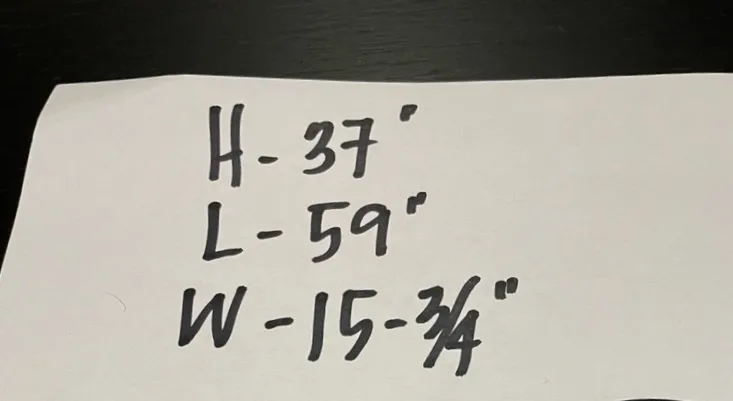 H - 37"
L - 59"
W - 15 - 3/4"